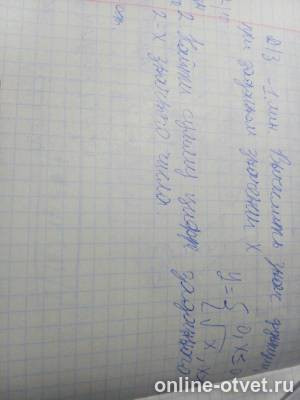 Вычислить знач. функции
при заданном значении x
y = { 0, x ≤ 0
√x, x
2 Найти сумму цифр
заданного
2-х значного числа
online-otvet.ru